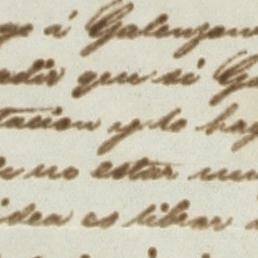 go á Galenzan
adir que si Ga
tacion y lo hag
no estar un
idea es librar